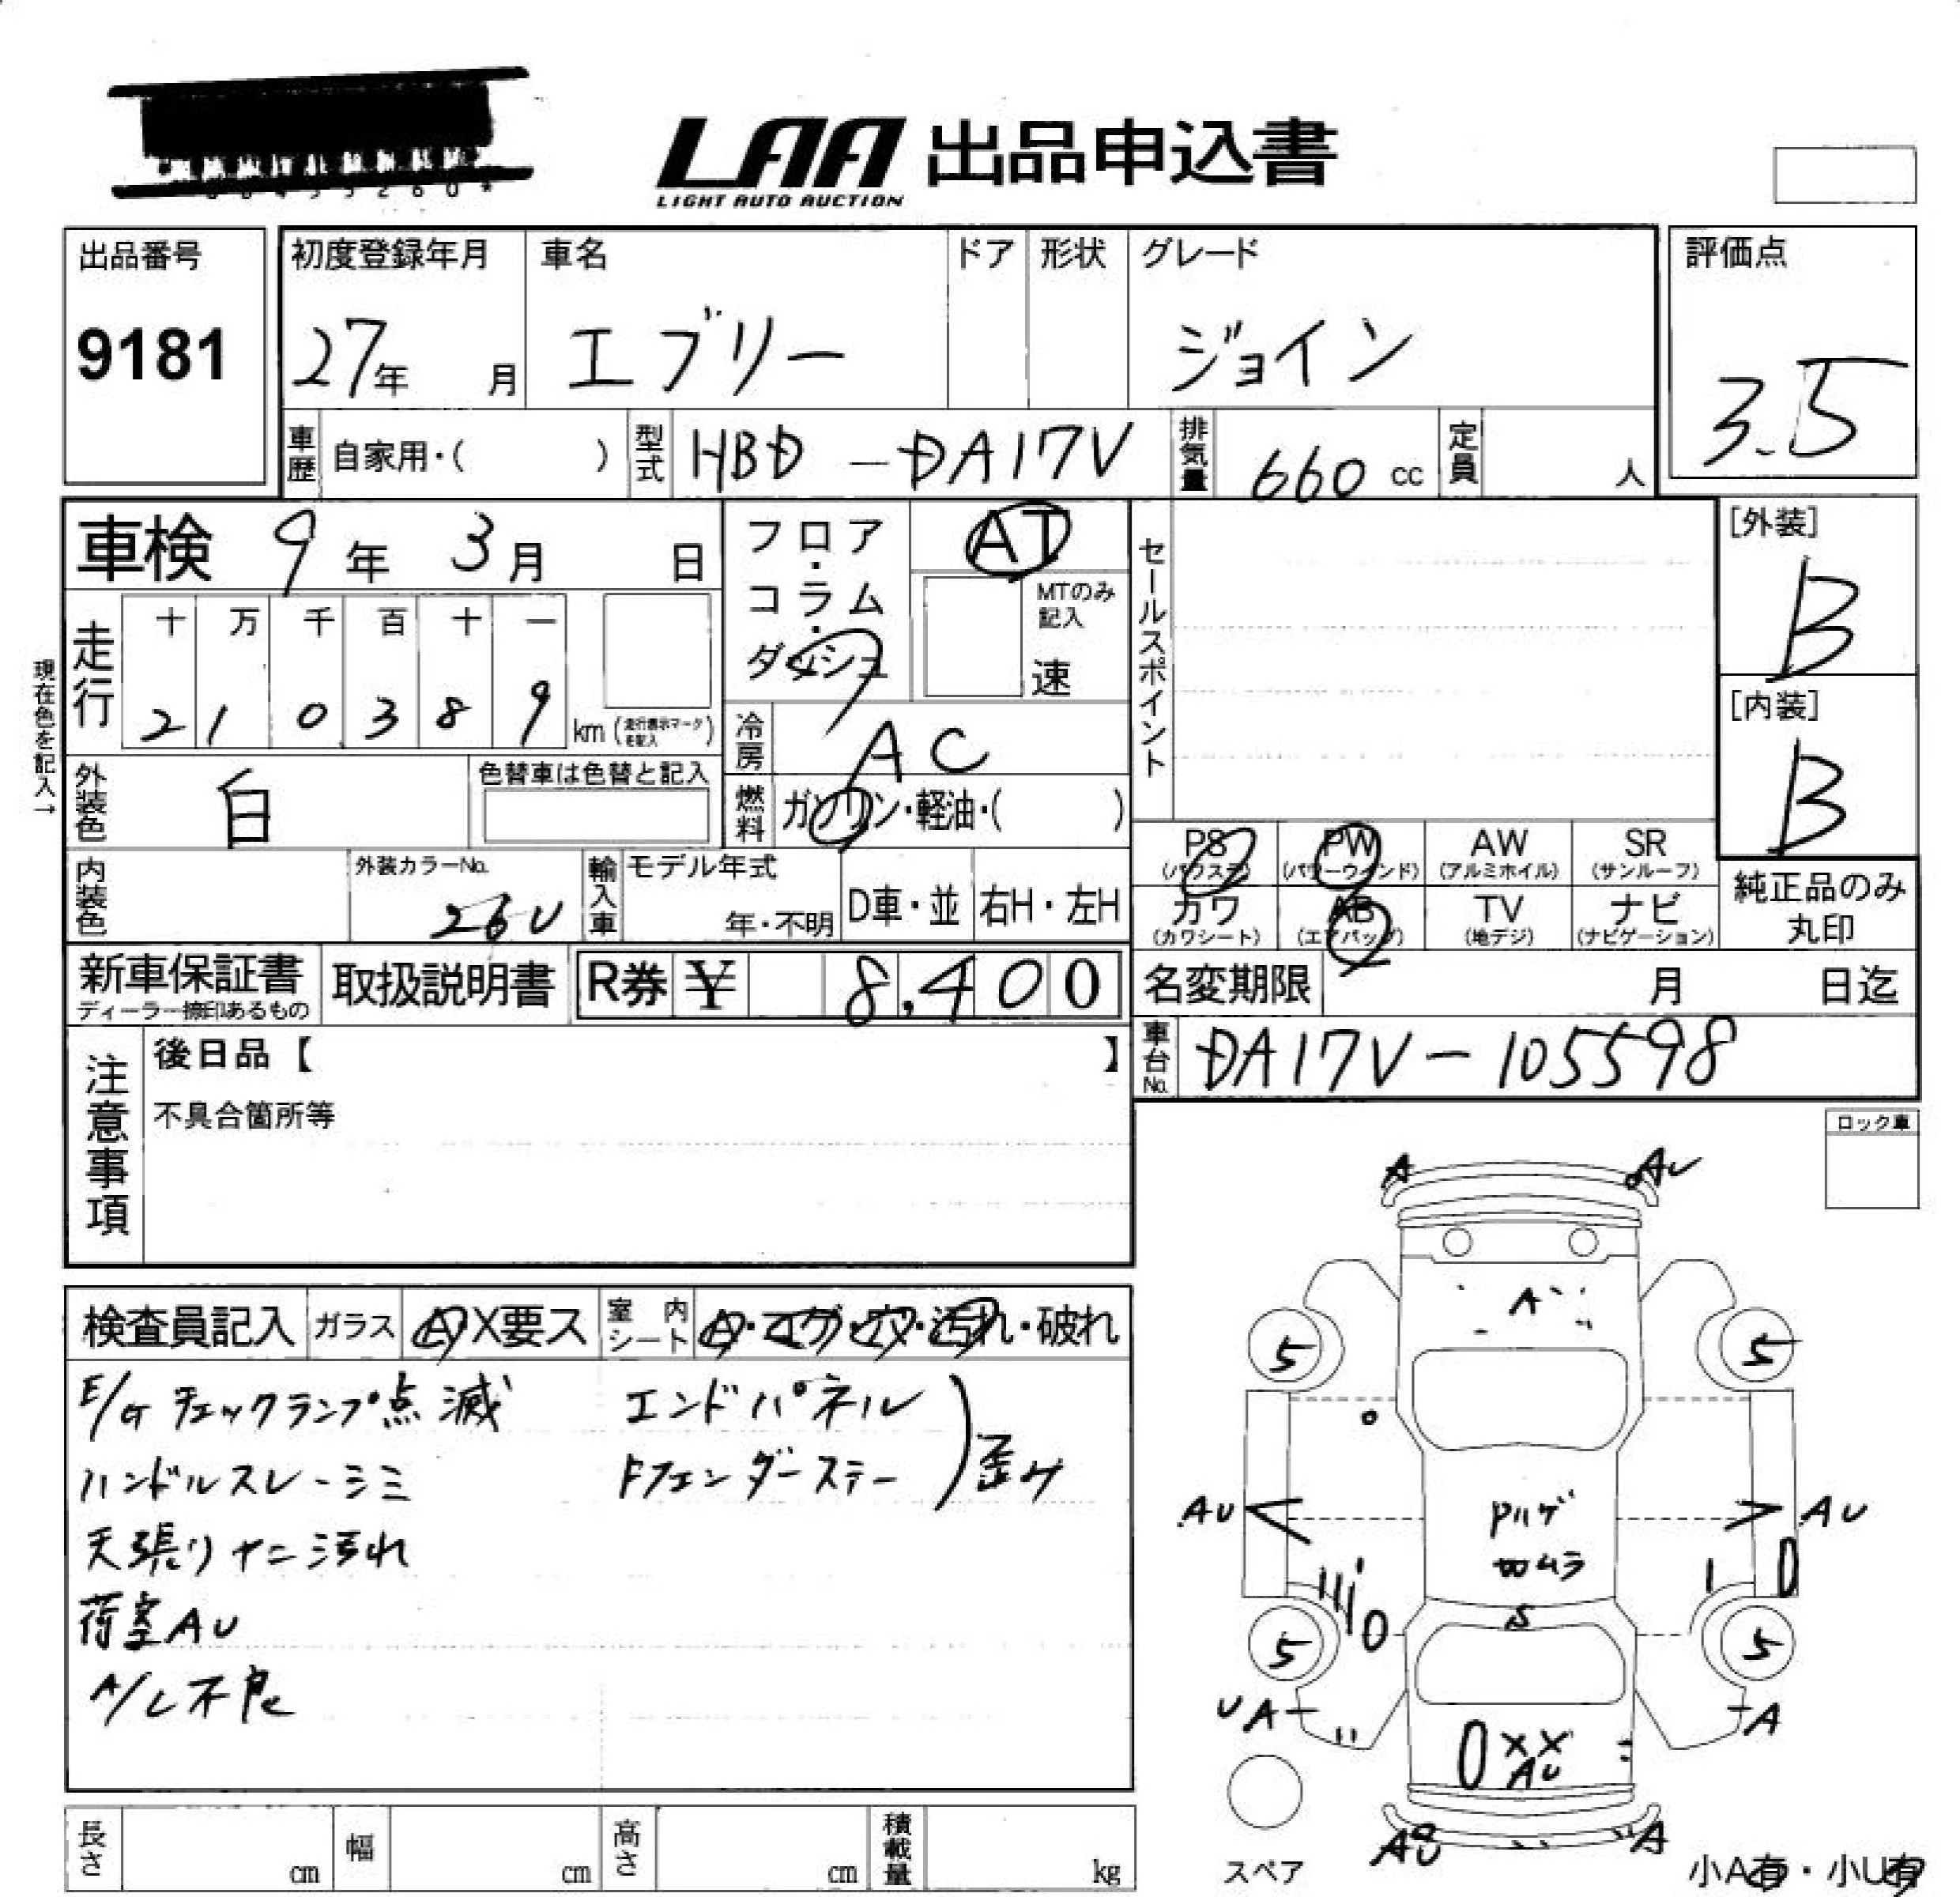 LAA 出品申込書
LIGHT AUTO AUCTION
出品番号
9181
初度登録年月
27年 月
車名
エブリー
ドア
形状
グレード
ジョイン
評価点
3.5
車歴 自家用・( )
型式 HBD-DA17V
排気量 660 cc
定員 人
車検 9年 3月 日
フロア・コラム・ダッシュ
AT
MTのみ記入
速
セールスポイント
[外装]
B
[内装]
B
現在色を記入→
走行
十 万 千 百 十 一
2 1 0 3 8 9 km (走行表示マークを記入)
冷房 AC
外装色 白
色替車は色替と記入
燃料 ガソリン・軽油・( )
内装色
外装カラーNo.
26U
輸入車
モデル年式
年・不明
D車・並
右H・左H
PS (パワステ)
PW (パワーウインド)
AW (アルミホイル)
SR (サンルーフ)
カワ (カワシート)
AB (エアバッグ)
TV (地デジ)
ナビ (ナビゲーション)
純正品のみ丸印
新車保証書
ディーラー捺印あるもの
取扱説明書
R券 ¥ 8,400
名変期限 月 日迄
車台No. DA17V-105598
注意事項
後日品【 】
不具合箇所等
ロック車
検査員記入
ガラス A X要ス
室内シート A・コゲ・穴・汚れ・破れ
E/G チェックランプ点滅
ハンドルスレ-シミ
天張りナニ汚れ
荷室AU
A/L不良
エンドパネル
Fフェンダーステー
歪み
A
AU
A
5
5
AU
AU
Pハゲ
ムラ
S
5
5
UA
A
XX
AU
AU
A
スペア
小A有・小U有
長さ cm
幅 cm
高さ cm
積載量 kg